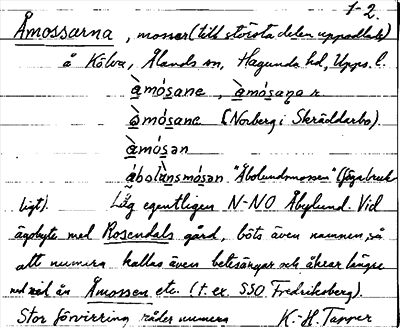 1-2.
Åmossarna, mossar (till största delen uppodlade)
å Kölva, Ålands sn, Hagunda hd, Upps. l.
à̱mó́sane, à̱mó́saṇa r.
ò̱mó́sane (Norberg i Skräddarbo).
à̱mó́sən
á̱bolànsmó́sən "Åbolundmossen" (föga bruk-
ligt). Låg egentligen N-NO Åbylund. Vid
ägobyte med Rosendals gård, böts även namnen, så
att numera kallas även betesängar och åkrar längre
ned vid ån Åmossen etc. (t. ex. SSO Fredriksberg).
Stor förvirring råder numera K.-H. Tapper